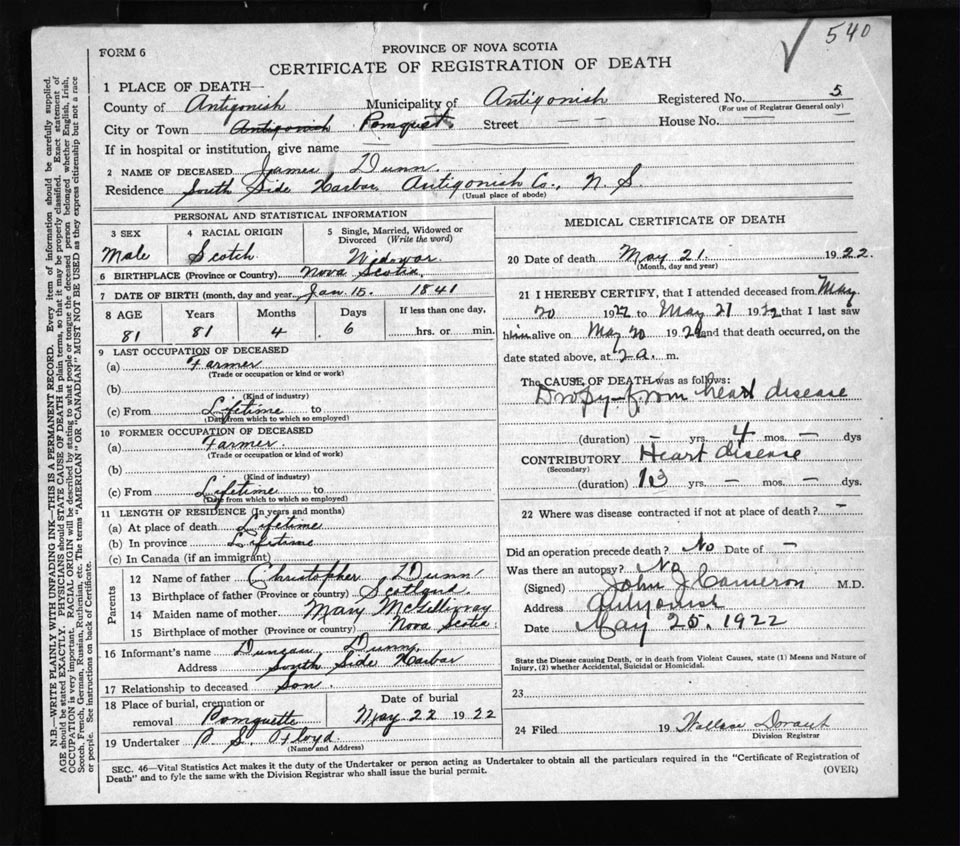 540
FORM 6
PROVINCE OF NOVA SCOTIA
CERTIFICATE OF REGISTRATION OF DEATH
1 PLACE OF DEATH—
County of Antigonish Municipality of Antigonish Registered No. 5
(For use of Registrar General only)
City or Town Antigonish Pomquet Street — — House No. —
If in hospital or institution, give name
2 NAME OF DECEASED James Dunn.
Residence South Side Harbor Antigonish Co., N. S.
(Usual place of abode)
PERSONAL AND STATISTICAL INFORMATION
3 SEX 4 RACIAL ORIGIN 5 Single, Married, Widowed or
Divorced (Write the word)
Male Scotch Widowar
6 BIRTHPLACE (Province or Country) Nova Scotia.
7 DATE OF BIRTH (month, day and year Jan. 15. 1841
8 AGE Years Months Days If less than one day,
81 81 4 6 hrs. or min.
9 LAST OCCUPATION OF DECEASED
(a) Farmer
(Trade or occupation or kind of work)
(b)
(Kind of industry)
(c) From Lifetime to
(Date from which to which so employed)
10 FORMER OCCUPATION OF DECEASED
(a) Farmer.
(Trade or occupation or kind of work)
(b)
(Kind of industry)
(c) From Lifetime to
(Date from which to which so employed)
11 LENGTH OF RESIDENCE (In years and months)
(a) At place of death Lifetime
(b) In province Lifetime
(c) In Canada (if an immigrant)
Parents
12 Name of father Christopher Dunn
13 Birthplace of father (Province or country) Scotland
14 Maiden name of mother Mary McGillivray
15 Birthplace of mother (Province or country) Nova Scotia
16 Informant's name Duncan Dunn,
Address South Side Harbor
17 Relationship to deceased Son.
18 Place of burial, cremation or Date of burial
removal Pomquette May 22 1922
19 Undertaker S. Floyd.
(Name and Address)
MEDICAL CERTIFICATE OF DEATH
20 Date of death May 21. 1922.
(Month, day and year)
21 I HEREBY CERTIFY, that I attended deceased from May
20 1922 to May 21 1922 that I last saw
him alive on May 20 192 and that death occurred, on the
date stated above, at 2 a. m.
The CAUSE OF DEATH was as follows:
Dropsy from heart disease
(duration) — yrs. 4 mos. — dys
CONTRIBUTORY Heart disease
(Secondary)
(duration) 13 yrs. — mos. — dys.
22 Where was disease contracted if not at place of death? —
Did an operation precede death? No Date of —
Was there an autopsy? No
(Signed) John J Cameron M.D.
Address Antigonish
Date May 25. 1922
State the Disease causing Death, or in death from Violent Causes, state (1) Means and Nature of
Injury, (2) whether Accidental, Suicidal or Homicidal.
23
24 Filed 19
Division Registrar
SEC. 46—Vital Statistics Act makes it the duty of the Undertaker or person acting as Undertaker to obtain all the particulars required in the "Certificate of Registration of
Death" and to fyle the same with the Division Registrar who shall issue the burial permit.
(OVER)
N.B.—WRITE PLAINLY WITH UNFADING INK—THIS IS A PERMANENT RECORD. Every item of information should be carefully supplied.
AGE should be stated EXACTLY. PHYSICIANS should STATE CAUSE OF DEATH in plain terms, so that it may be properly classified. Exact statement of
OCCUPATION is very important. RACIAL ORIGIN will be described by stating to what people or tongue the deceased person belonged whether English, Irish,
Scotch, French, German, Russian, Ruthenian, etc. The terms "AMERICAN" OR "CANADIAN" MUST NOT BE USED as they express citizenship but not a race
or people. See instructions on back of Certificate.